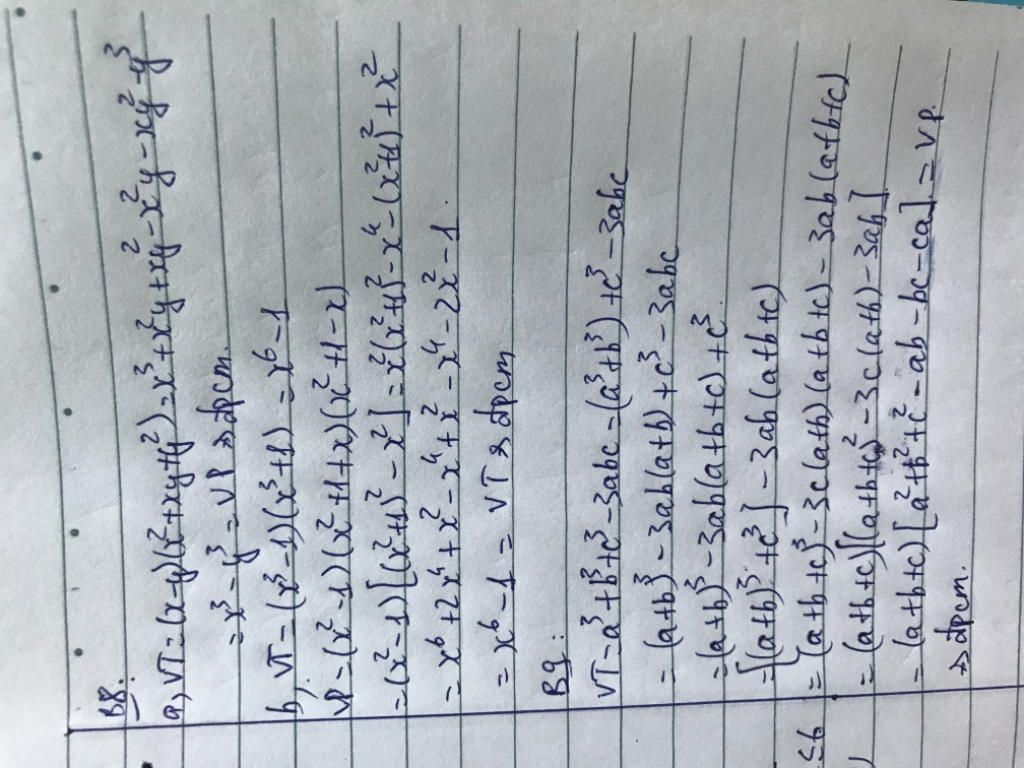 B8.
a, VT = (x-y)(x²+xy+y²) = x³+x²y+xy²-x²y-xy²-y³
= x³-y³ = VP => đpcm.
b, VT = (x³-1)(x³+1) = x⁶-1
VP = (x²-1)(x²+1+x)(x²+1-x)
= (x²-1)[(x²+1)²-x²] = x²(x²+1)²-x⁴-(x²+1)²+x²
= x⁶+2x⁴+x²-x⁴+x²-x⁴-2x²-1.
= x⁶-1 = VT => đpcm
B9:
VT = a³+b³+c³-3abc = (a³+b³)+c³-3abc
= (a+b)³-3ab(a+b)+c³-3abc
= (a+b)³-3ab(a+b+c)+c³.
= [(a+b)³+c³]-3ab(a+b+c)
= (a+b+c)³-3c(a+b)(a+b+c)-3ab(a+b+c)
= (a+b+c)[(a+b+c)²-3c(a+b)-3ab]
= (a+b+c)[a²+b²+c²-ab-bc-ca] = VP.
=> đpcm.